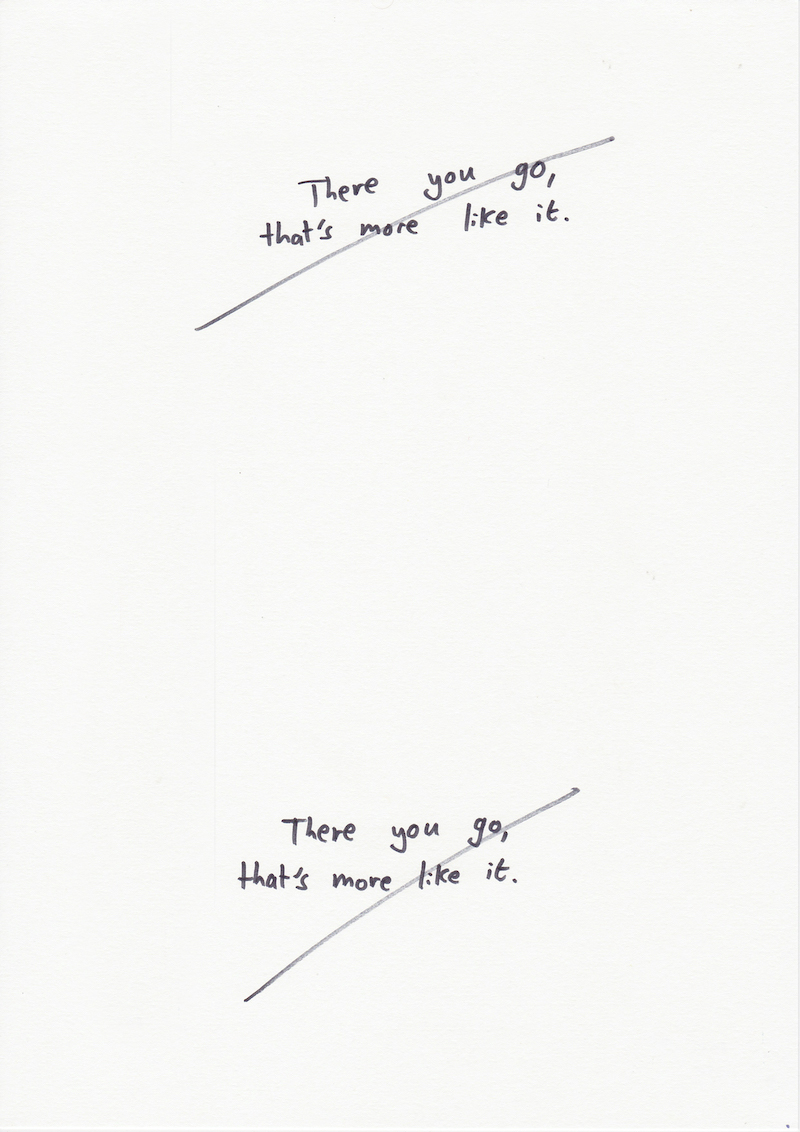 There you go,
that's more like it.
There you go,
that's more like it.